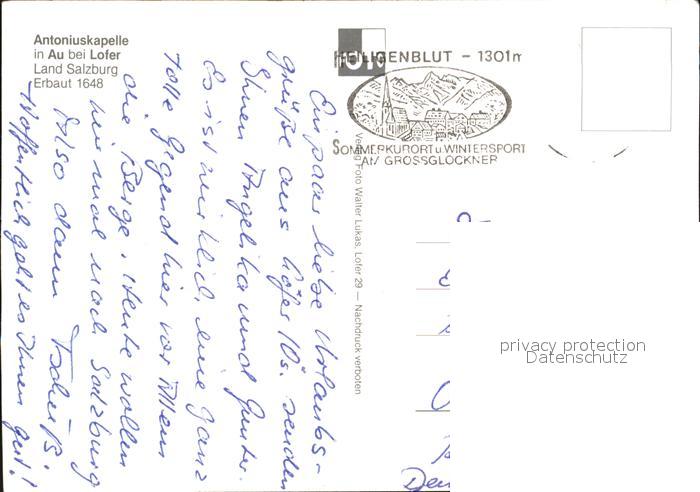 Antoniuskapelle
in Au bei Lofer
Land Salzburg
Erbaut 1648
HEILIGENBLUT - 1301m
SOMMERKURORT u. WINTERSPORT
AM GROSSGLOCKNER
Verlag Foto Walter Lukas, Lofer 29 — Nachdruck verboten
Ein paar liebe Urlaubs-
grüße aus Lofer / Ös. senden
Ihnen Angelika und Gunter.
Es ist wirklich eine ganz
tolle Gegend hier vor Allem
die Berge. Heute wollen
wir mal nach Salzburg
Also dann Tschüß.
Hoffentlich geht es Ihnen gut!
privacy protection
Datenschutz